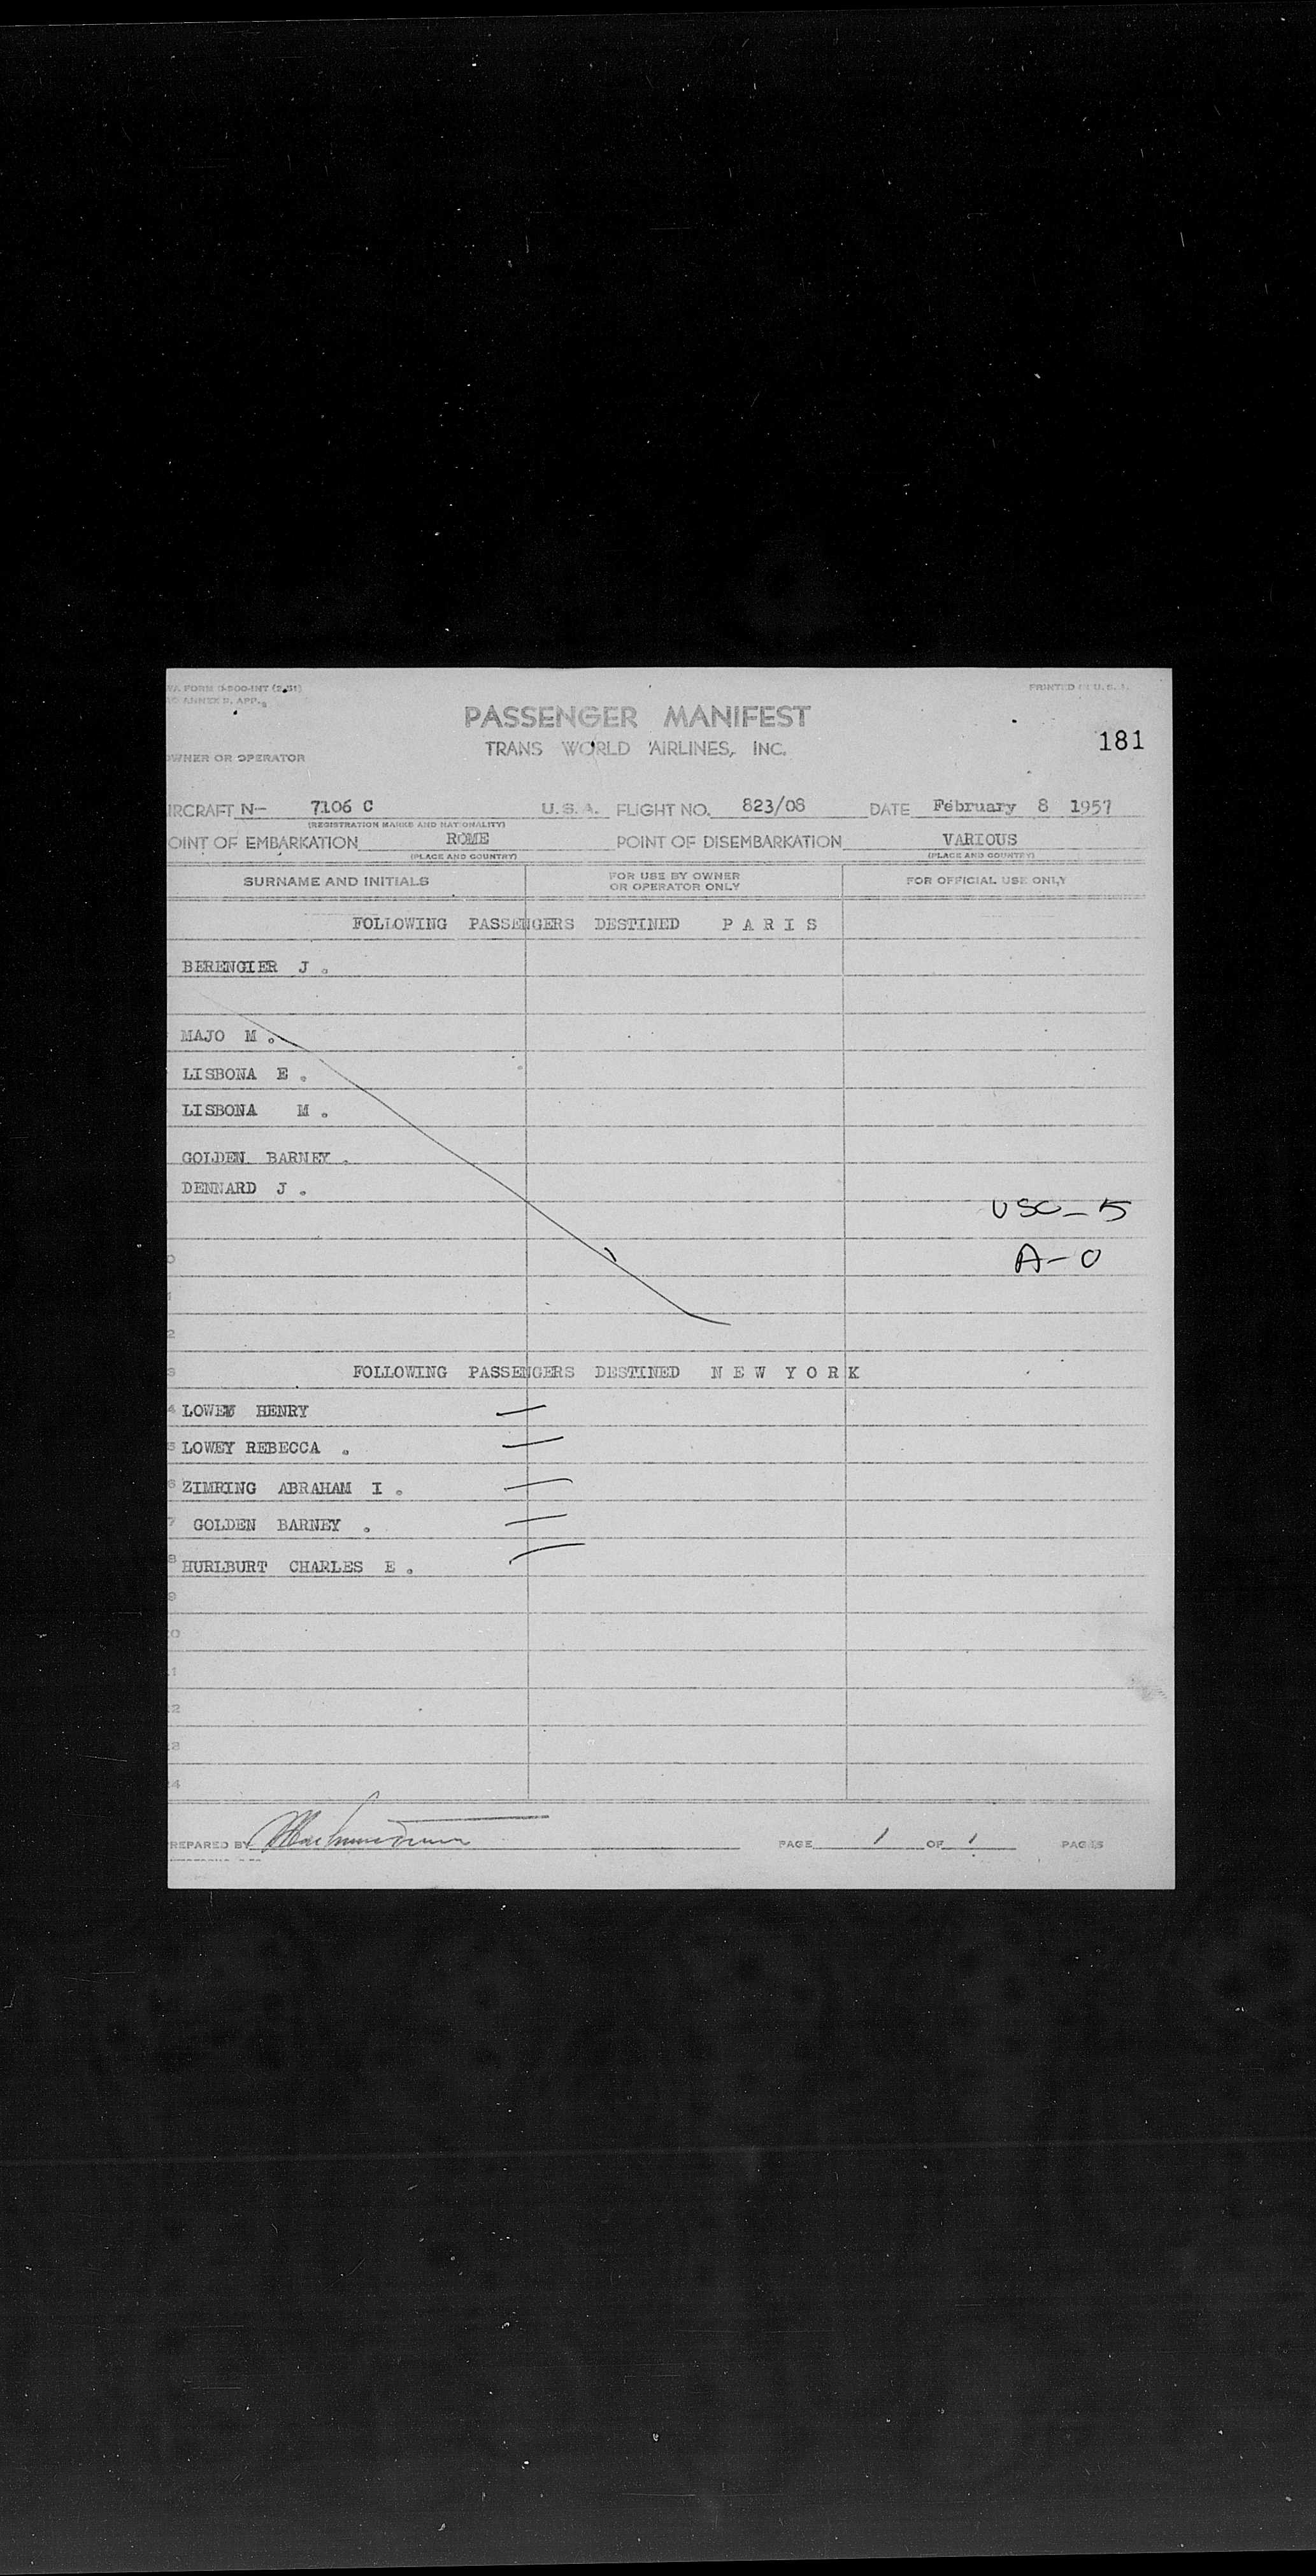 WA FORM I-500-INT (2-51)
AO ANNEX D, APP.
PRINTED IN U. S. A.
PASSENGER MANIFEST
TRANS WORLD AIRLINES, INC.
181
OWNER OR OPERATOR
IRCRAFT N- 7106 C U. S. A. FLIGHT NO. 823/08 DATE February 8 1957
(REGISTRATION MARKS AND NATIONALITY)
OINT OF EMBARKATION ROME POINT OF DISEMBARKATION VARIOUS
(PLACE AND COUNTRY) (PLACE AND COUNTRY)
SURNAME AND INITIALS FOR USE BY OWNER OR OPERATOR ONLY FOR OFFICIAL USE ONLY
FOLLOWING PASSENGERS DESTINED P A R I S
BERENGIER J .
MAJO M .
LISBONA E .
LISBONA M .
GOLDEN BARNEY .
DENNARD J .
USC - 5
0 A - 0
1
2
3 FOLLOWING PASSENGERS DESTINED N E W Y O R K
4 LOWEY HENRY
5 LOWEY REBECCA .
6 ZIMRING ABRAHAM I .
7 GOLDEN BARNEY .
8 HURLBURT CHARLES E .
9
0
1
2
3
4
REPARED BY PAGE 1 OF 1 PAGES